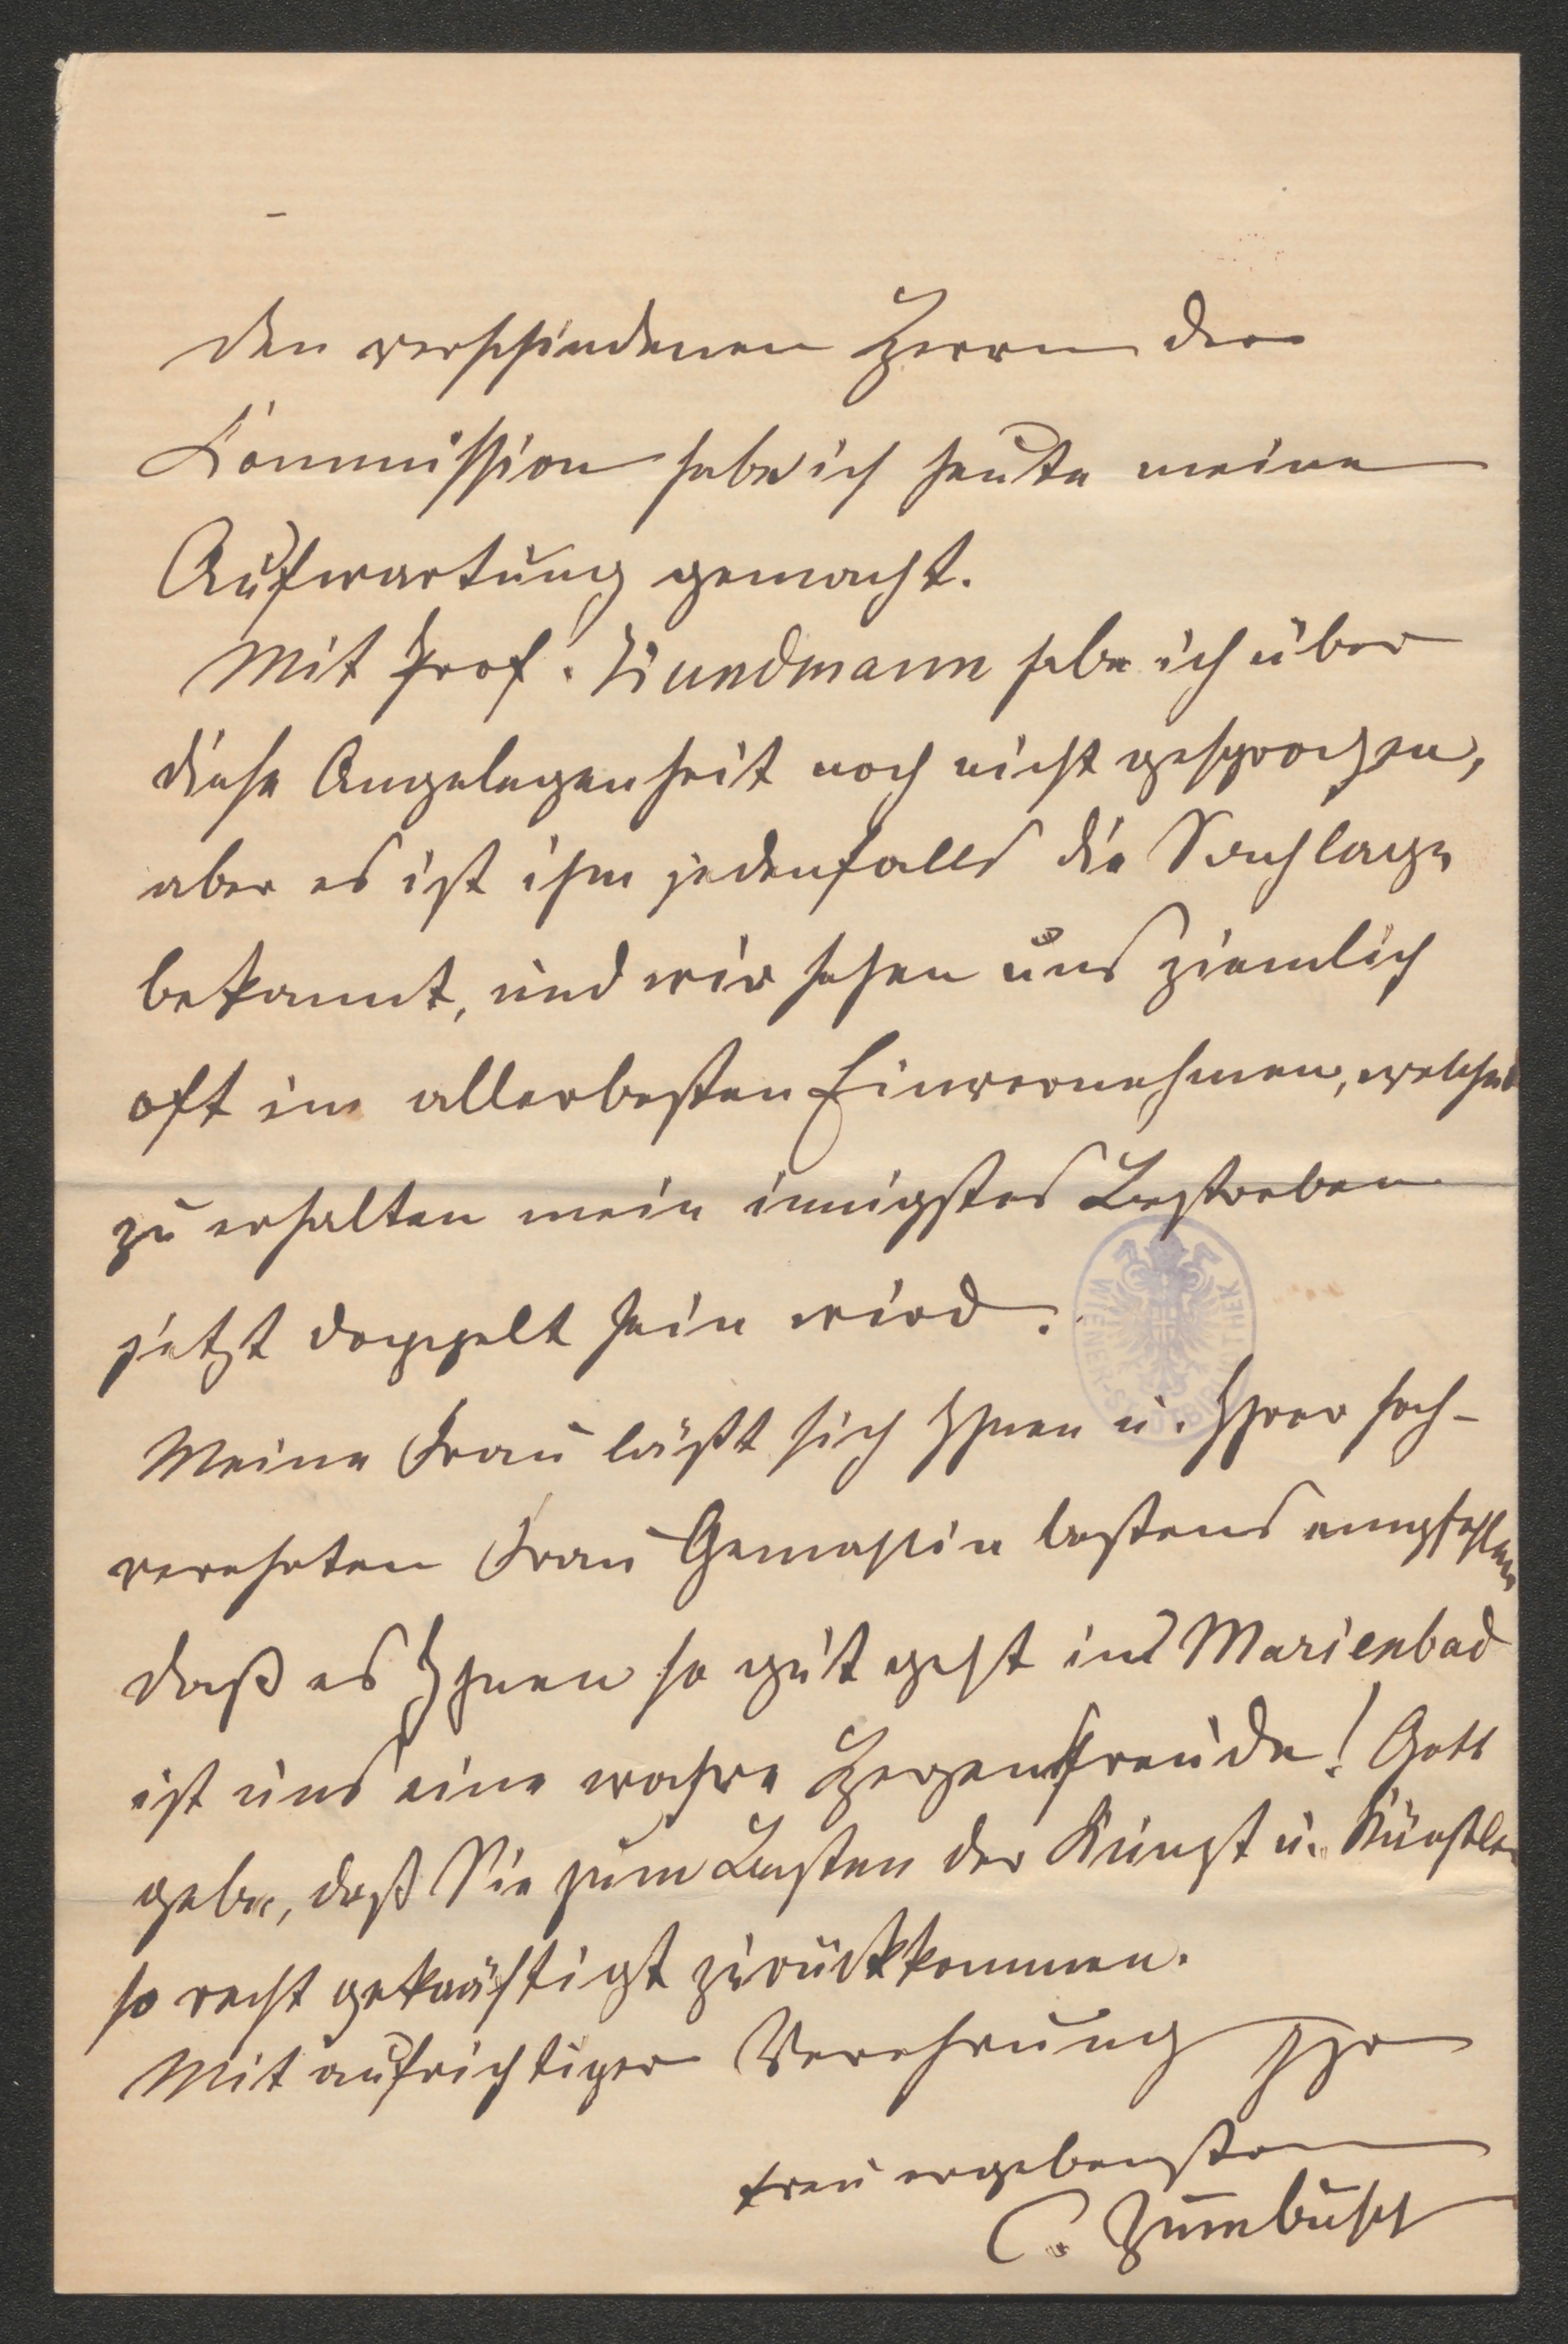 den verschiedenen Herrn der
Kommission habe ich heute meine
Aufwartung gemacht.
Mit Prof. Kundmann habe ich über
diese Angelegenheit noch nicht gesprochen,
aber es ist ihm jedenfalls die Sachlage
bekannt, und wir sehen uns ziemlich
oft im allerbesten Einvernehmen, welches
zu erhalten mein innigstes Bestreben
jetzt doppelt sein wird.
Meine Frau läßt sich Ihnen u. Ihrer hoch-
verehrten Frau Gemahlin bestens empfehlen
daß es Ihnen so gut geht in Marienbad
ist uns eine wahre Herzensfreude! Gott
gebe, daß Sie zum Besten der Kunst u. Künstler
so recht gekräftigt zurückkommen.
Mit aufrichtiger Verehrung Ihr
treu ergebenster
C. Zumbusch